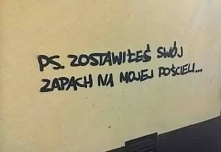 PS. ZOSTAWIŁEŚ SWÓJ
ZAPACH NA MOJEJ POŚCIELI...